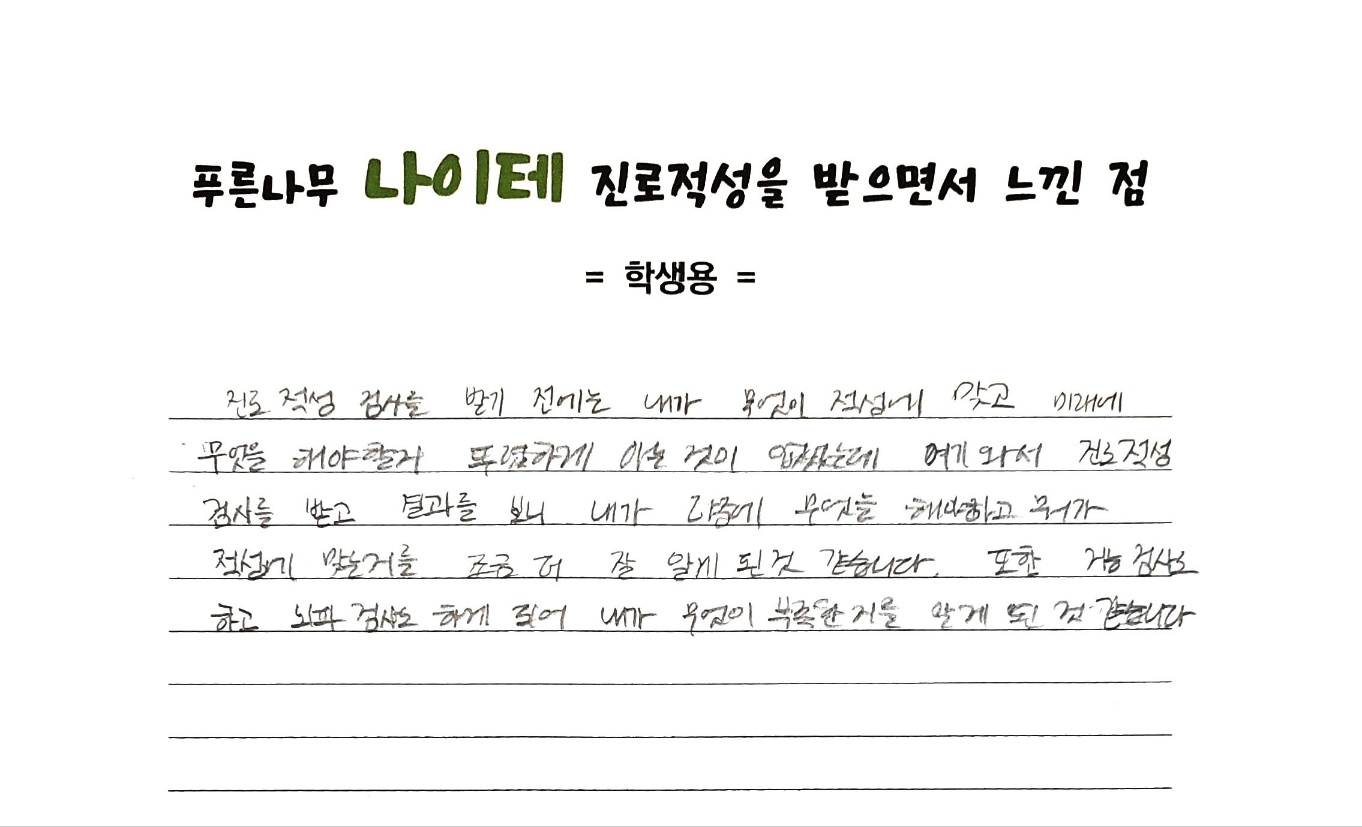 푸른나무 나이테 진로적성을 받으면서 느낀 점
= 학생용 =
진로 적성 검사를 받기 전에는 내가 무엇이 적성에 맞고 미래에
무엇을 해야할지 뚜렷하게 아는 것이 없었는데 여기 와서 진로적성
검사를 받고 결과를 보니 내가 나중에 무엇을 해야하고 뭐가
적성에 맞는거를 조금 더 잘 알게 된것 같습니다. 또한 지능 검사도
하고 뇌파 검사도 하게 되어 내가 무엇이 부족한 지를 알게 된 것 같습니다